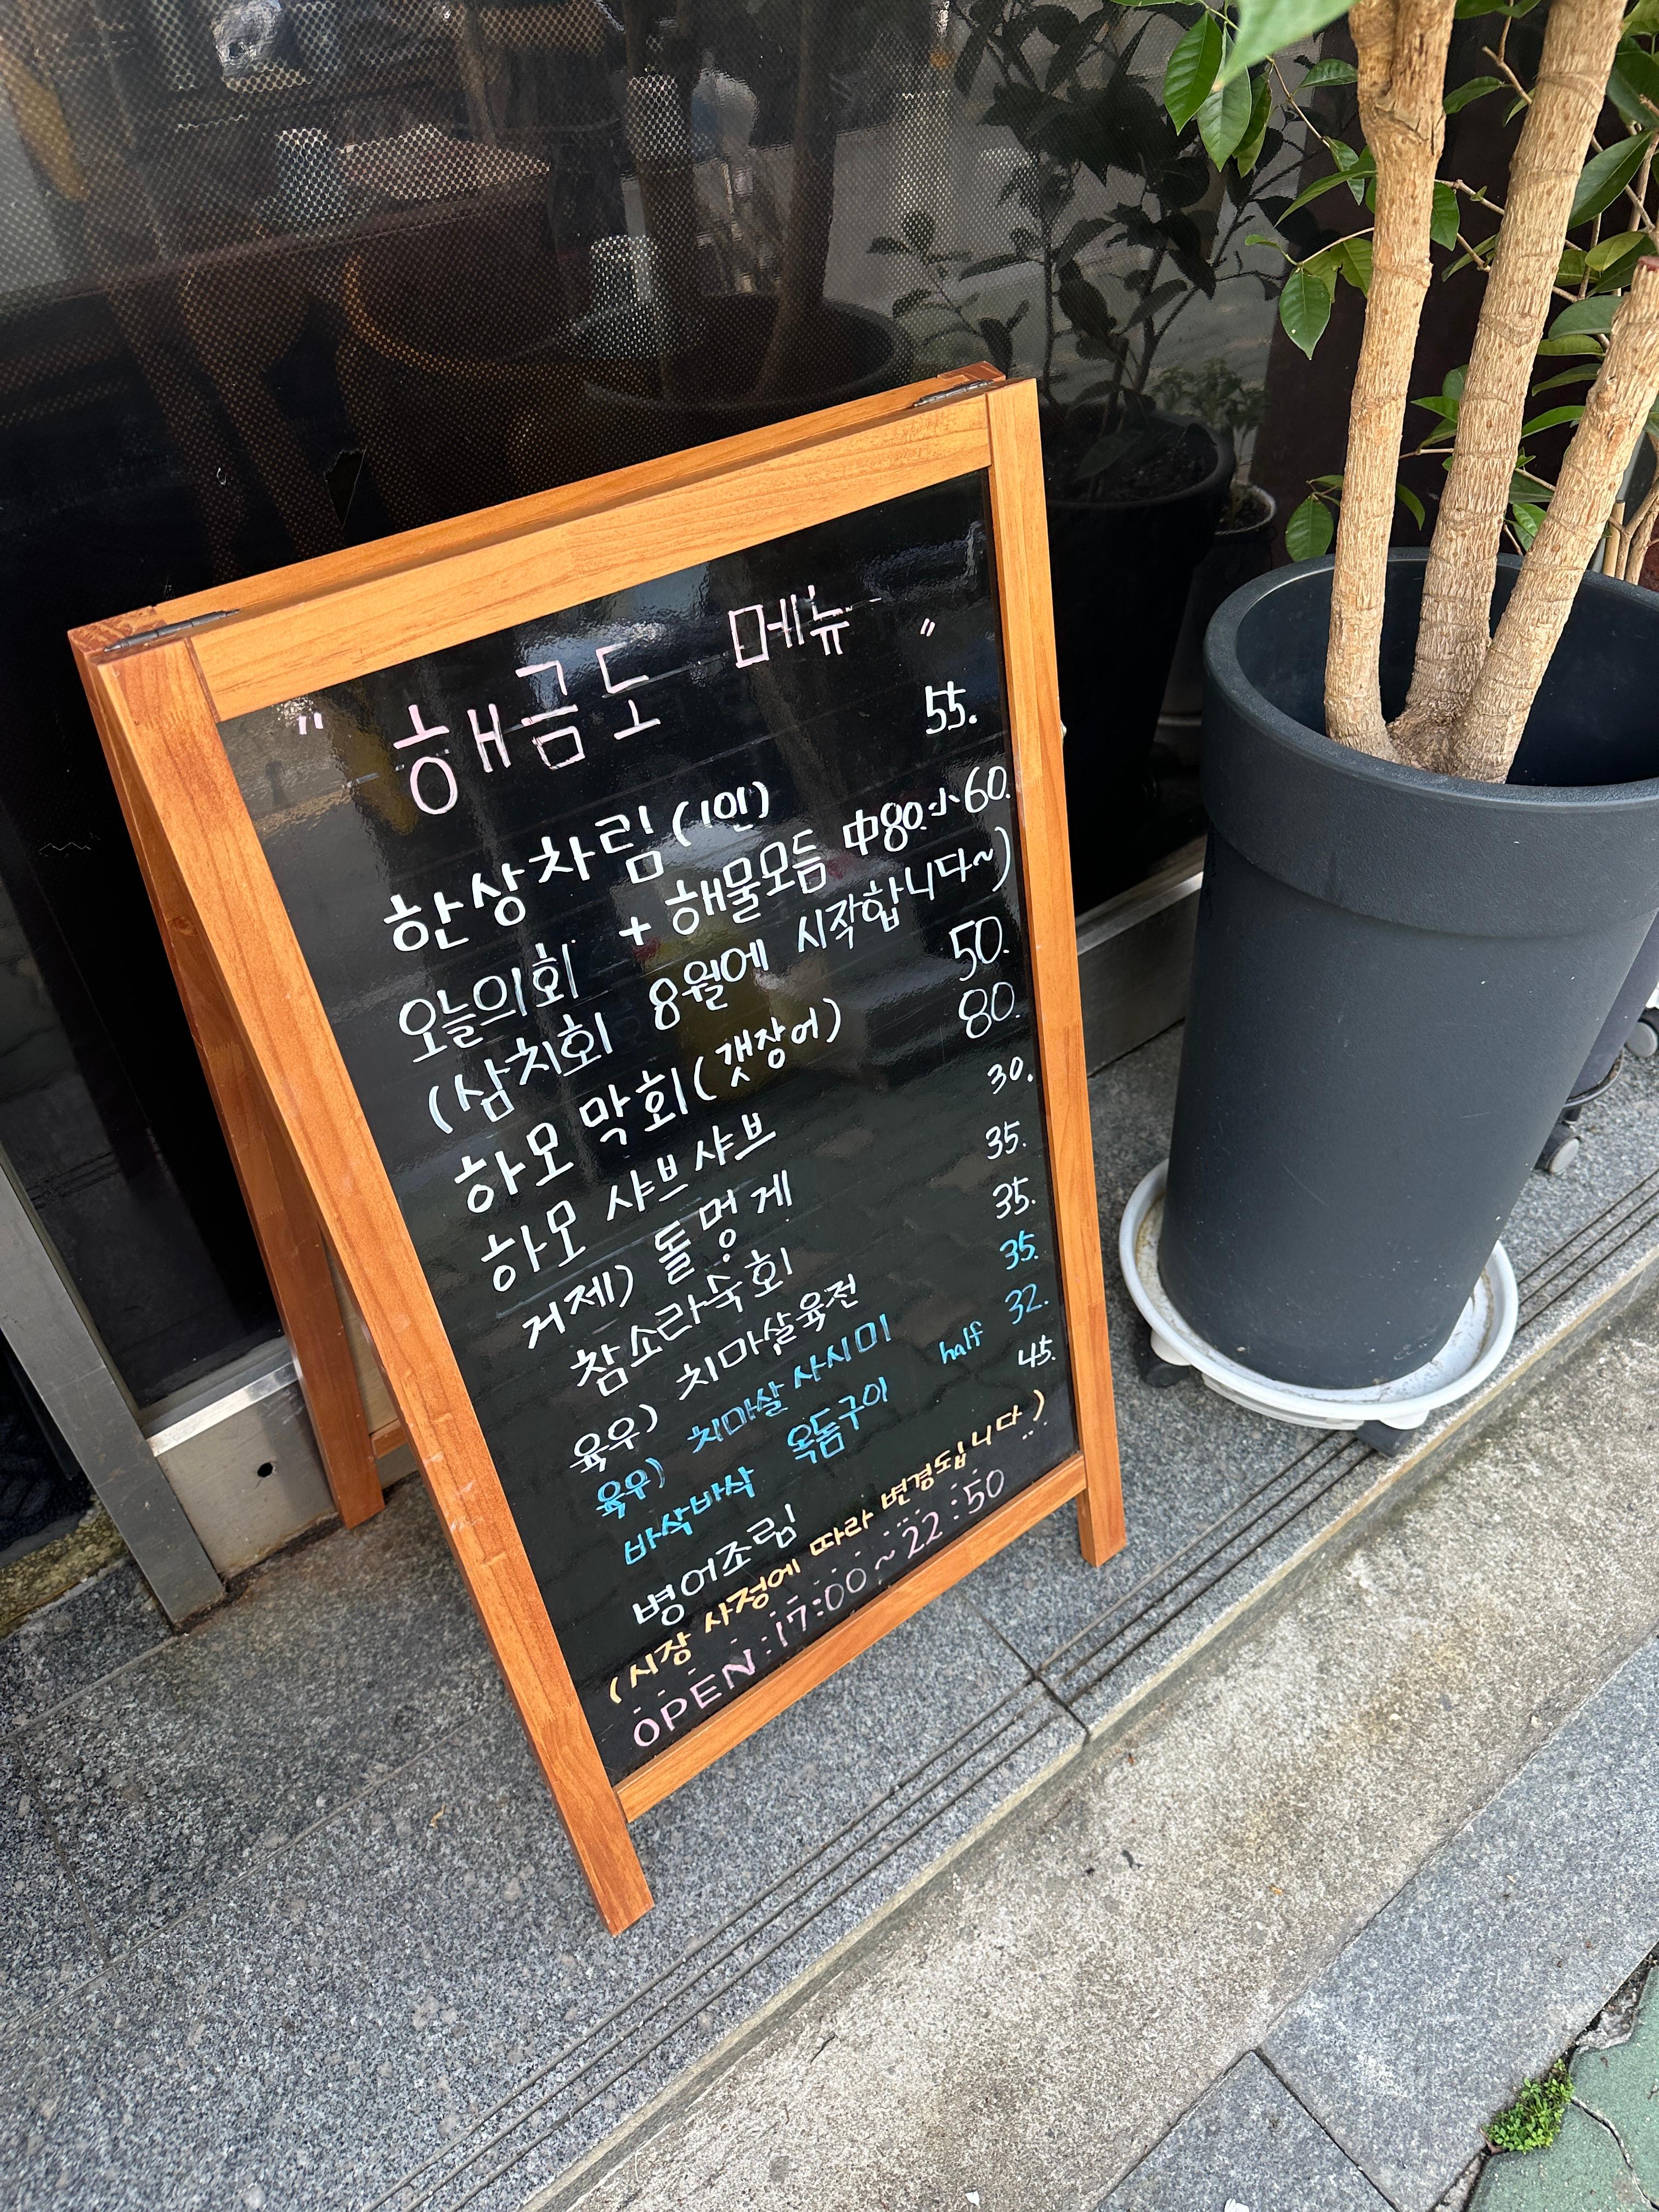 " 해금도 메뉴 "
한상차림(1인) 55.
오늘의회 + 해물모듬 中80.小60.
(삼치회 8월에 시작합니다~)
하모 막회(갯장어) 50.
하모 샤브샤브 80.
거제) 돌멍게 30.
참소라숙회 35.
육우) 치마살육전 35.
육우) 치마살 사시미 35.
바삭바삭 옥돔구이 half 32.
병어조림 45.
(시장 사정에 따라 변경됩니다..)
OPEN:17:00~22:50